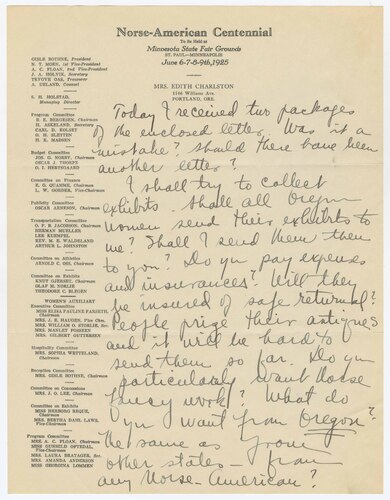 Norse-American Centennial
To Be Held at
Minnesota State Fair Grounds
ST. PAUL—MINNEAPOLIS
June 6-7-8-9th, 1925
GISLE BOTHNE, President
N. T. MOEN, 1st Vice-President
A. C. FLOAN, 2nd Vice-President
J. A. HOLVIK, Secretary
TRYGVE OAS, Treasurer
A. UELAND, Counsel
S. H. HOLSTAD,
Managing Director
Program Committee
H. ASKELAND, Secretary
CARL D. KOLSET
O. H. SLETTEN
H. K. MADSEN
Budget Committee
JOS. G. NORBY, Chairman
OSCAR J. THORPE
O. I. HERTSGAARD
Committee on Finance
E. G. QUAMME, Chairman
L. W. GORDER, Vice-Chairman
Publicity Committee
OSCAR ARNESON, Chairman
Transportation Committee
O. P. B. JACOBSON, Chairman
HERMAN MUELLER
LEE KUEMPEL
REV. M. E. WALDELAND
ARTHUR L. JOHNSTON
Committee on Athletics
ARNOLD C. OSS, Chairman
Committee on Exhibits
KNUT GJERSET, Chairman
OLAF M. NORLIE
THEODORE C. BLEGEN
WOMEN'S AUXILIARY
Executive Committee
MISS ELISA PAULINE FARSETH,
Chairman
MRS. WILLIAM O. STORLIE, Sec.
MRS. MANLEY FOSSEEN
MRS. GILBERT GUTTERSEN
Hospitality Committee
MRS. SOPHIA WETTELAND,
Chairman
Reception Committee
MRS. GISLE BOTHNE, Chairman
Committee on Concessions
MRS. J. O. LEE, Chairman
Committee on Exhibits
MISS HERBORG REQUE,
Chairman
MRS. BERTHA DAHL LAWS,
Vice-Chairman
Program Committee
MRS. A. C. FLOAN, Chairman
MISS GUNHILD OFTEDAL,
Vice-Chairman
MRS. LAURA BRATAGER, Sec.
MRS. AMANDA ANDERSON
MISS GEORGINA LOMMEN
MRS. EDITH CHARLSTON
1146 Williams Ave.
PORTLAND, ORE.
Today I received two packages
of the enclosed letter. Was it a
mistake? Should there have been
another letter?
I shall try to collect
exhibits. Shall all Oregon
women send their exhibits to
me? Shall I send them then
to you? Do you pay expenses
and insurances? Will they
be insured of safe return?
People prize their antiques
and it will be hard to
send them so far. Do you
particularly want Norse
fancy work? What do
you want from Oregon?
the same as from
other states - from
any Norse-American?